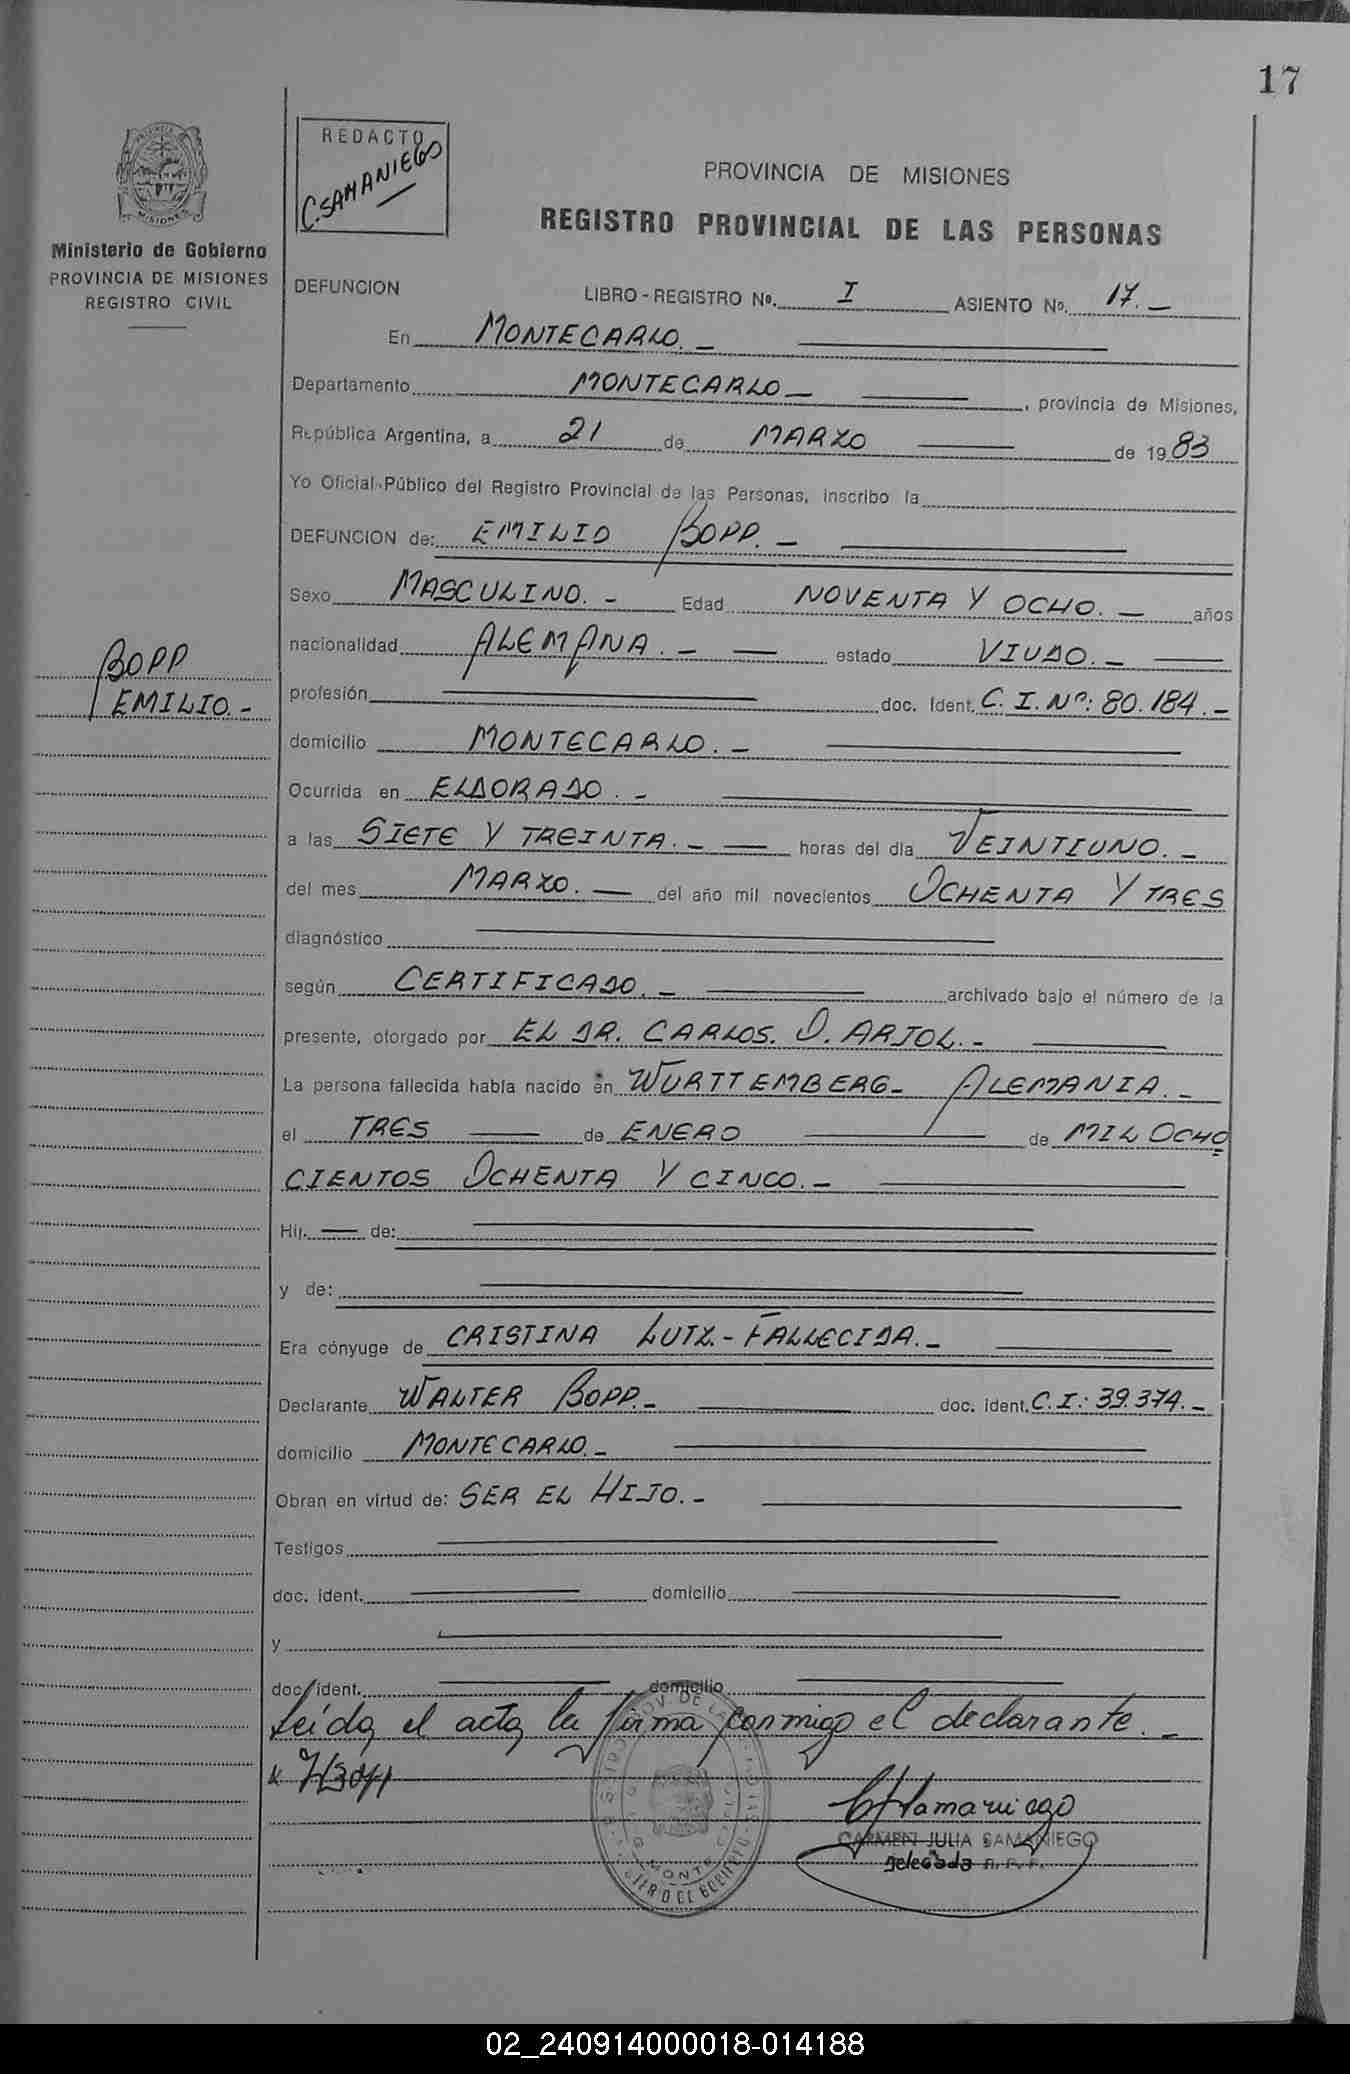 17
REDACTO
C. SAMANIEGO
PROVINCIA DE MISIONES
REGISTRO PROVINCIAL DE LAS PERSONAS
Ministerio de Gobierno
PROVINCIA DE MISIONES
REGISTRO CIVIL
DEFUNCION LIBRO - REGISTRO Nº. I ASIENTO Nº. 17. -
En MONTECARLO. -
Departamento MONTECARLO - , provincia de Misiones,
República Argentina, a 21 de MARZO de 1983
Yo Oficial Público del Registro Provincial de las Personas, inscribo la
DEFUNCION de: EMILIO BOPP. -
Sexo MASCULINO. - Edad NOVENTA Y OCHO. - años
BOPP
EMILIO. -
nacionalidad ALEMANA. - estado VIUDO. -
profesión doc. Ident. C. I. Nº: 80.184. -
domicilio MONTECARLO. -
Ocurrida en ELDORADO. -
a las SIETE Y TREINTA. - horas del día VEINTIUNO. -
del mes MARZO. - del año mil novecientos OCHENTA Y TRES
diagnóstico
según CERTIFICADO. - archivado bajo el número de la
presente, otorgado por EL DR. CARLOS. D. ARJOL. -
La persona fallecida había nacido en WURTTEMBERG - ALEMANIA. -
el TRES de ENERO de MIL OCHO
CIENTOS OCHENTA Y CINCO. -
Hij. de:
y de:
Era cónyuge de CRISTINA LUTZ. - FALLECIDA. -
Declarante WALTER BOPP. - doc. ident. C. I.: 39.374. -
domicilio MONTECARLO. -
Obran en virtud de: SER EL HIJO. -
Testigos
doc. ident. domicilio
y
doc. ident. domicilio
Leída el acta la firma conmigo el declarante. -
CARMEN JULIA SAMANIEGO
Delegada R. P. P.
02_240914000018-014188